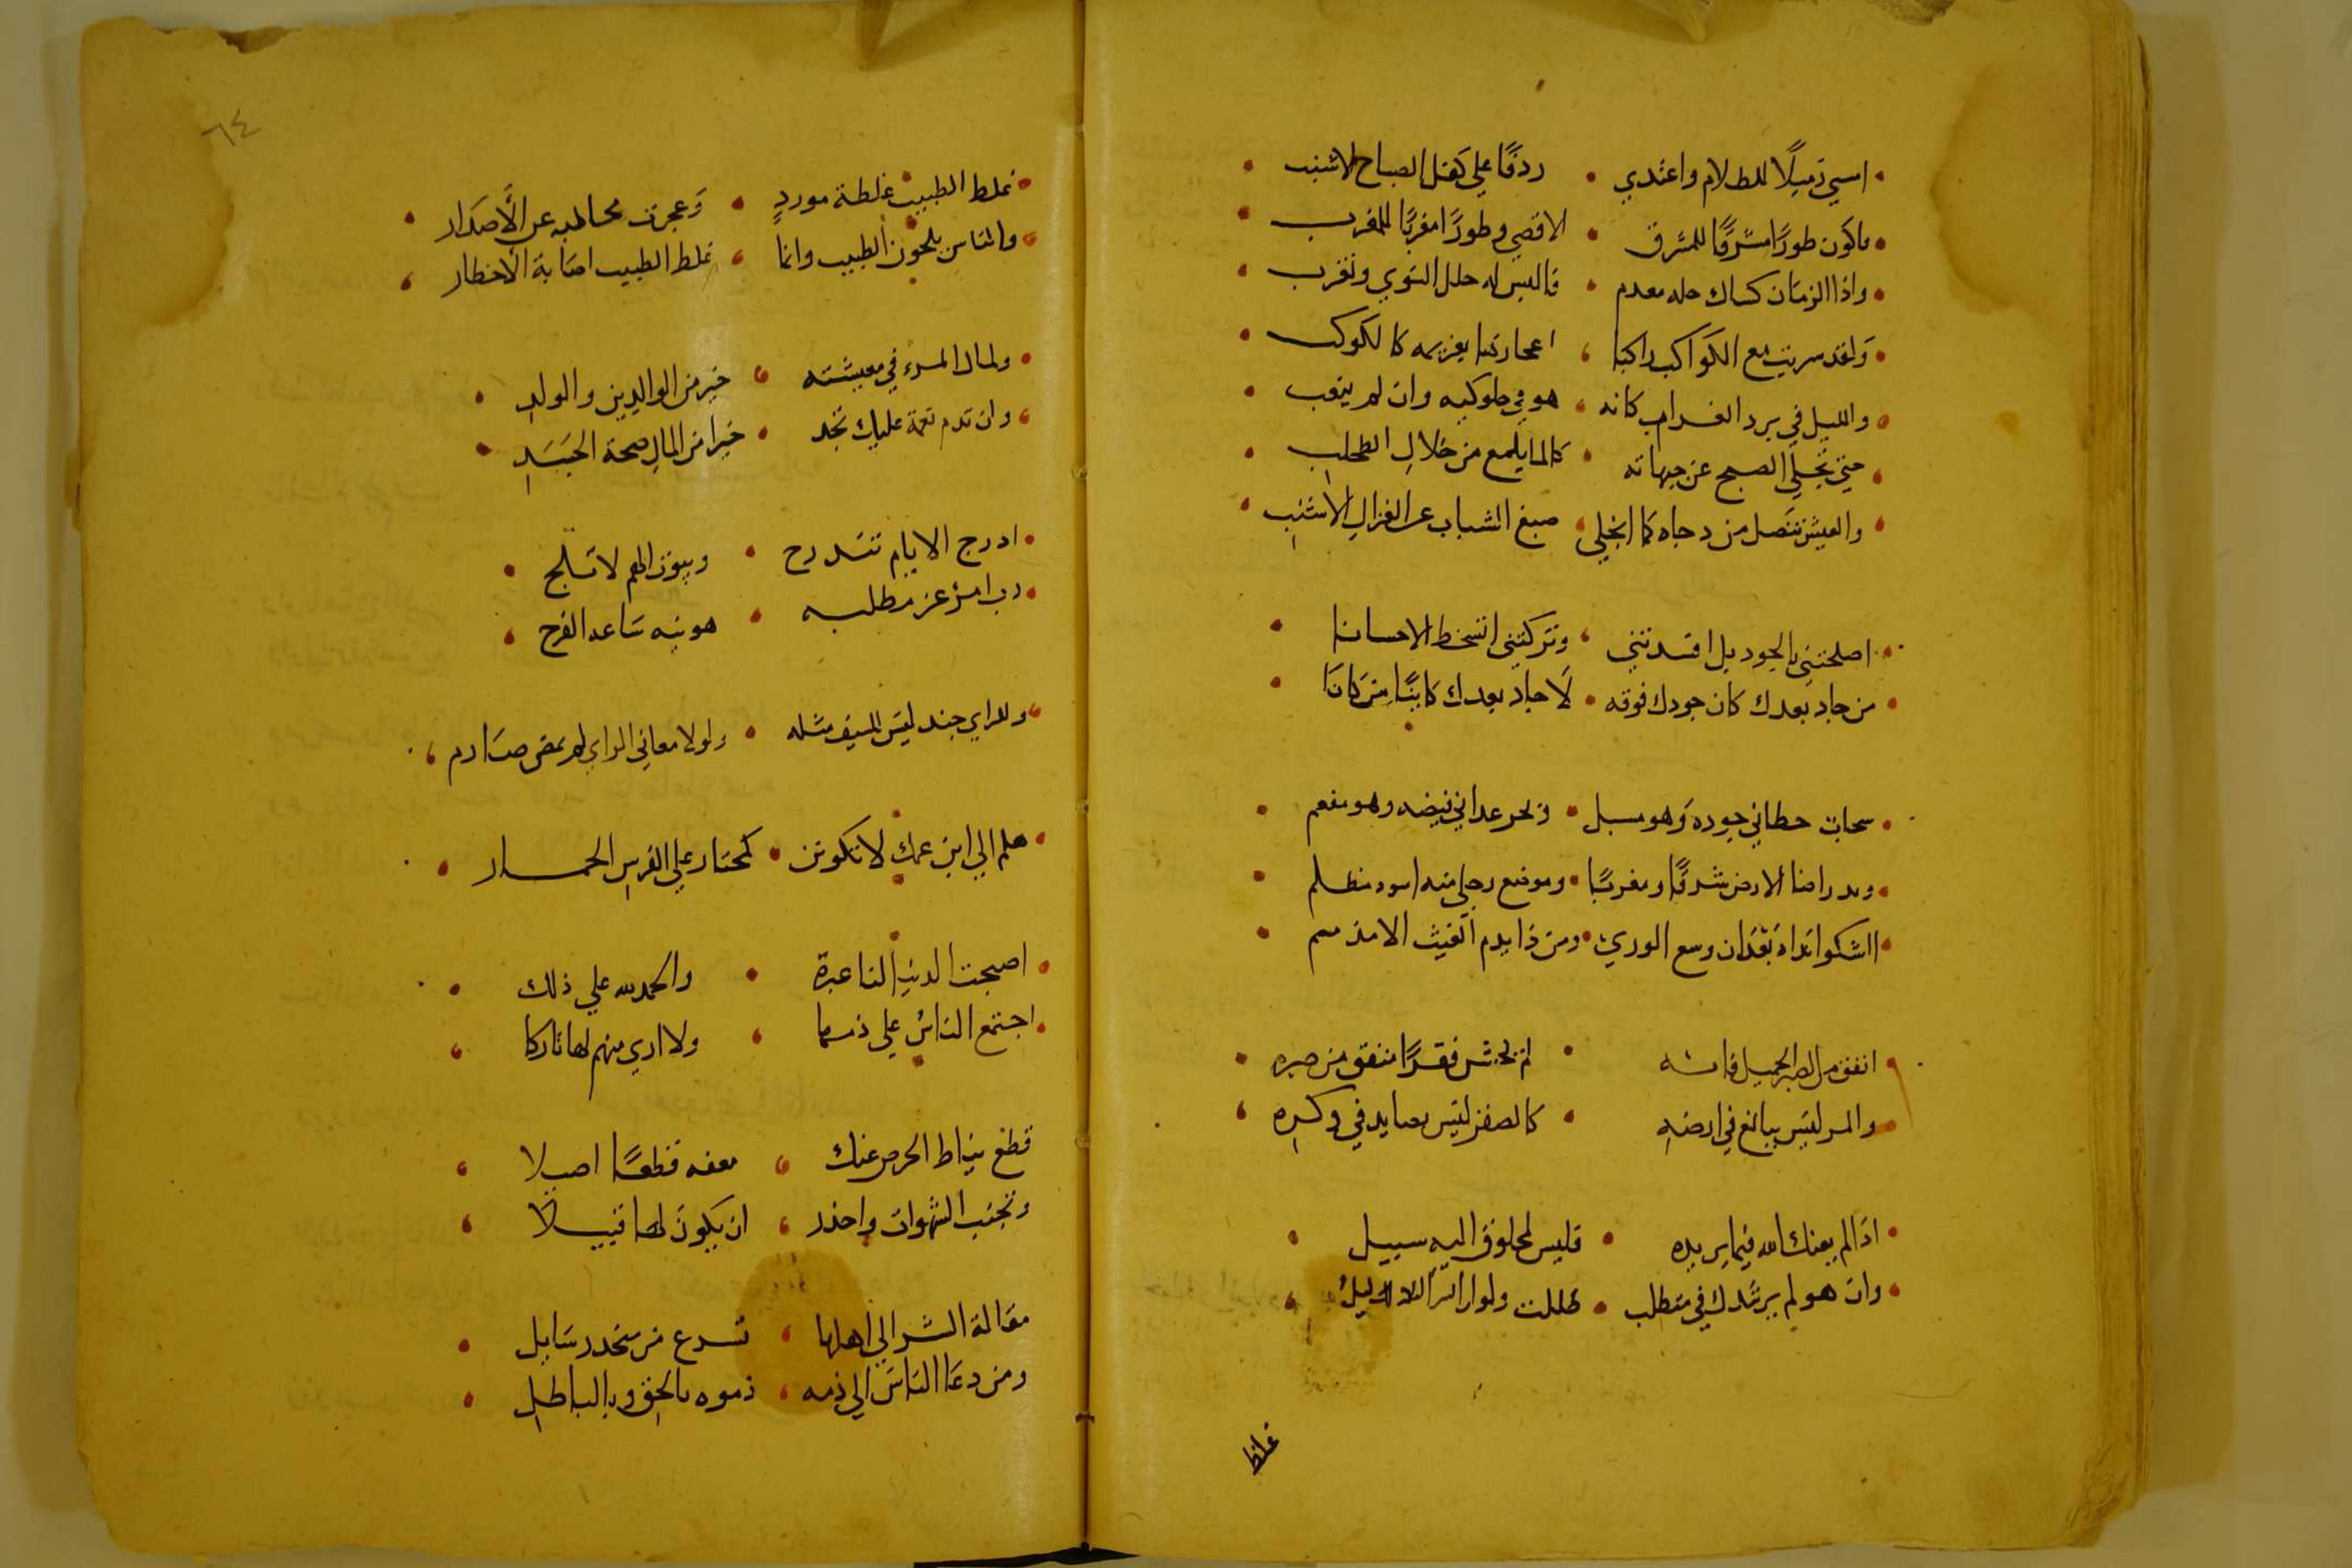 امسي زميلًا للظلام واغتدي ردفًا علي كفل الصباح الاشنب
فاكون طورًا مشرقًا للمشرق الاقصي وطورًا مغربًا للمغرب
واذا الزمَان كساك حله معدم فالبس له حلل النوي وتغرب
وَلقد سريت مع الكواكب راكبا اعجازها بعزيمه كالكوكب
والليل في برد كانه هو في حلوكيه وان لم ينعب
حتي تجلي الصبح عن جنباته كالما يلمع من خلالِ الطحلب
والعيش تنصل من دجاه كما انجلي صبغ الشباب عن القذال الاشنب
اصلحتني بالجود بل افسدتني وتركتني اتسخط الاحسانا
من جاد بعدك كان جودك فوقه لَا جاد بعدك كاينًا من كانَا
سحاب خطاني جوده وَهو مسبل وبحر عداني فيضه وهو مفعم
وبدر اضا الارض شرقًا ومغربًا وموضع رجلي منه اسود مظلم
ااشكوا نداه بَعْدَان وسع الوري ومن ذا يذم الغيث الا مذمم
انفق من الصبر الجميل فانه لم يخش فقرًا منفق من صبره
والمر ليس ببالغ في ارضه كالصقر ليس بصايد في وكره
اذا لم يعنك الله فيما يريده فليس لمخلوق اليه سبيل
وان هو لم يرشدك في مطلب ظللت ولو ان دليلُ
غلط
٦٤
غلط الطبيب غلطة موردٍ وَعجزت محالبه عن الأصدَار
والناس يلحون الطبيب وانما غلط الطبيب اصابة الأخطار
ولمال المرء في معيشته خير من الوالدين والولد
وان تدم نعمة عليك تجد خيرا من المالِ صحة الجَسَدِ
ادرج الايام تندرج وبيوت الهم لا تلج
رب امر عز مطلبه هونته سَاعه الفرج
وللراي جند ليس للسيف مثله ولولا معاني الراي لم يمض صَارم
هلم الي ابن عمك لا تكونن كمختار علي الفرس الحمار
اصبحت الدنيا لنا عبرة والحمد لله علي ذلك
اجتمع الناسُ علي ذمها ولا اري منهم لها تاركا
قطع نياط الحرص عنك بعفه قطعًا اصيلا
وتجنب الشهوات واحذر ان يكون لها قتيلًا
مقالة الشر الي اهلها تسرع من منحدر سَايل
ومن دعَا الناس الي ذمه ذموه بالحق وبالباطل